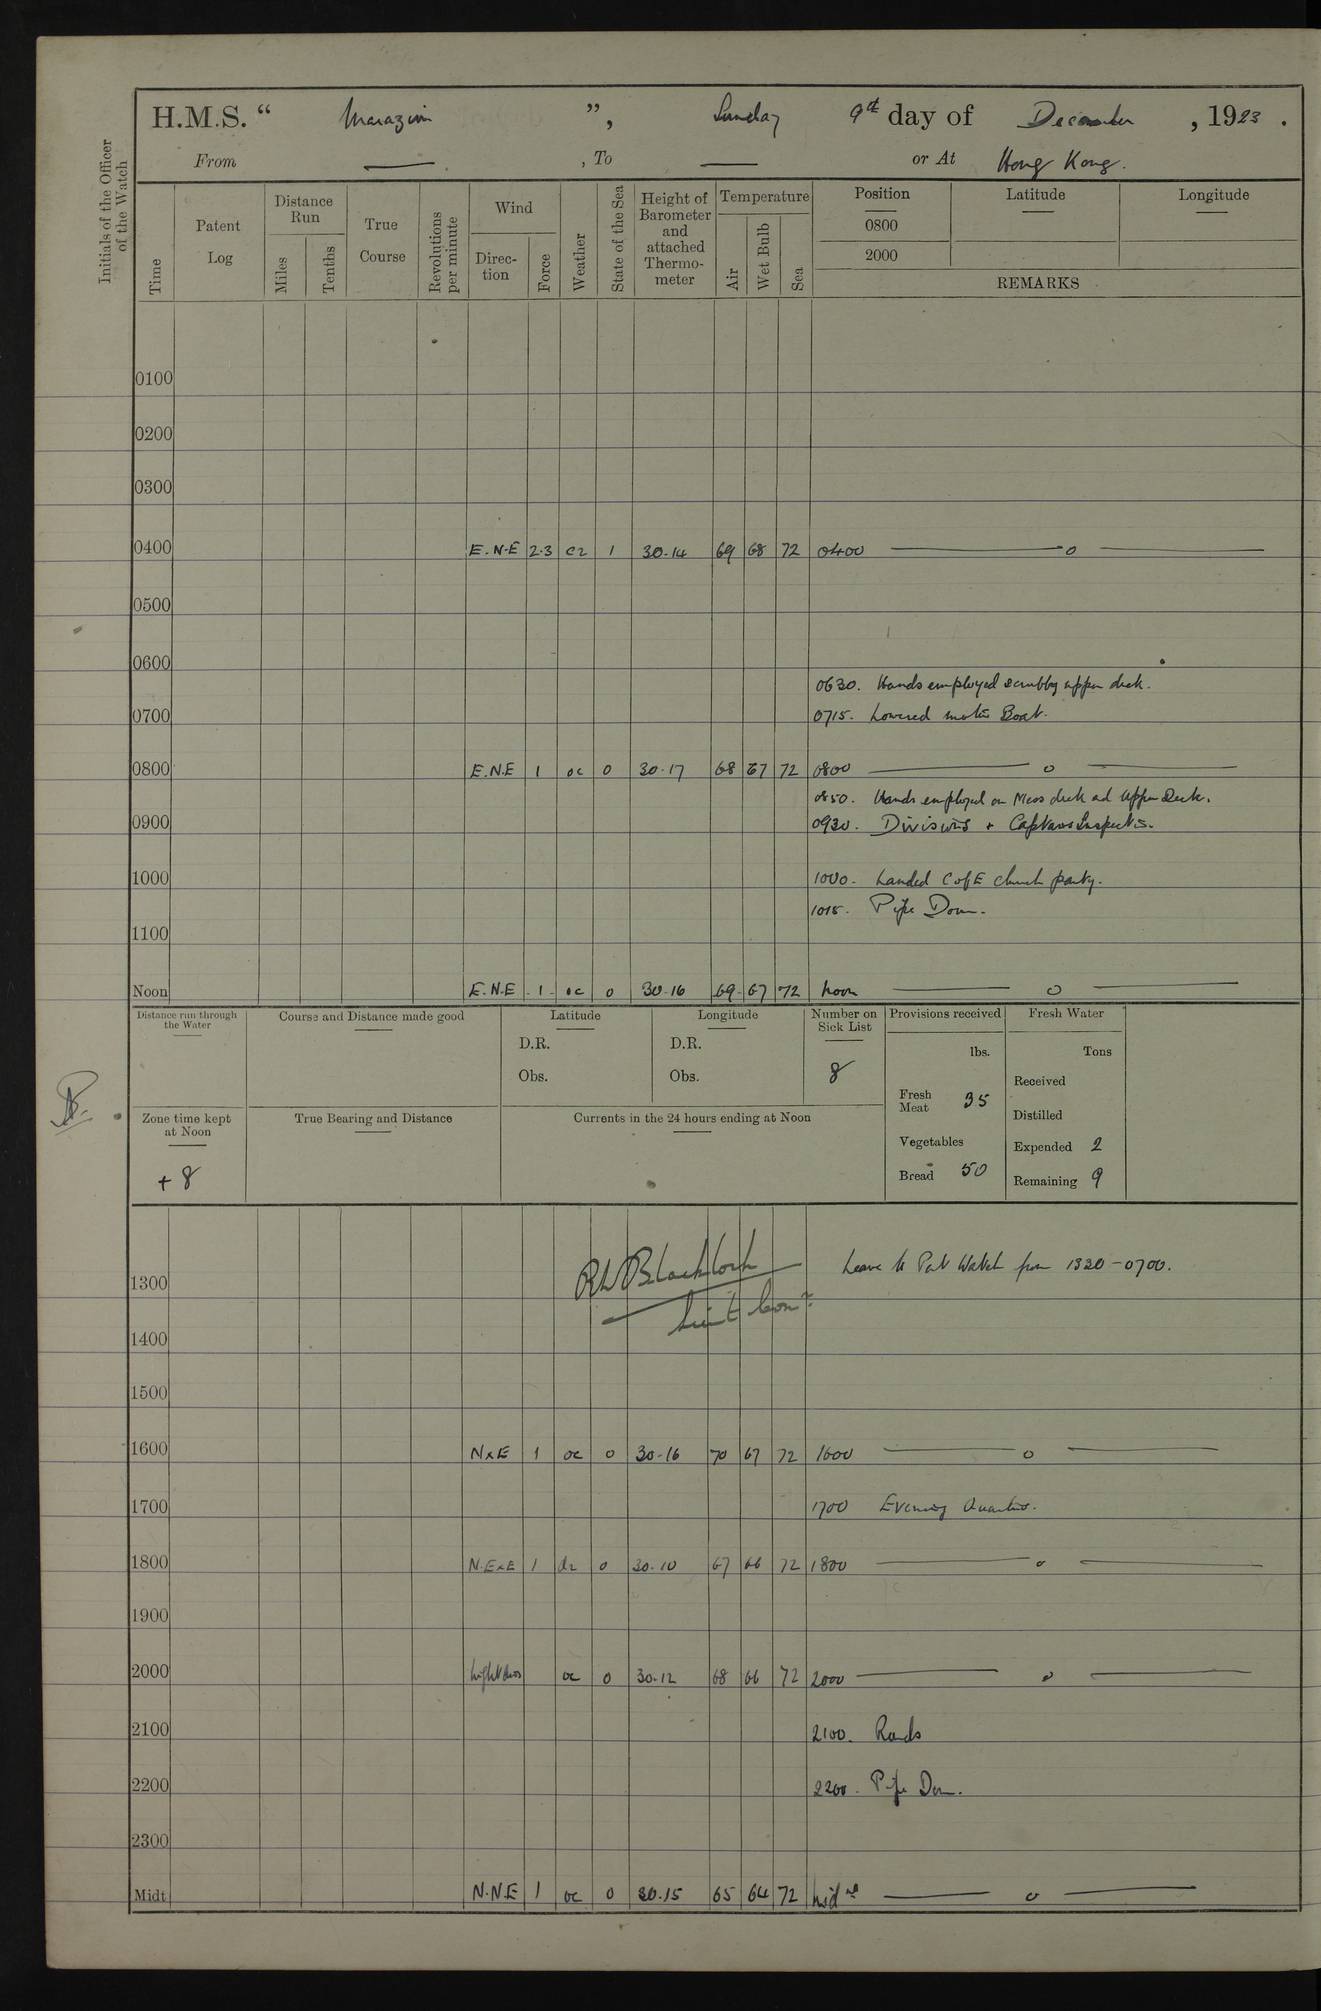 H.M.S. “ Marazion ”, Sunday 9th day of December, 1923.
From — , To — or At Hong Kong.
Initials of the Officer of the Watch
Time
Patent Log
Distance Run
Miles
Tenths
True Course
Revolutions per minute
Wind
Direc-tion
Force
Weather
State of the Sea
Height of Barometer and attached Thermo-meter
Temperature
Air
Wet Bulb
Sea
Position Latitude Longitude
0800
2000
REMARKS
0100
0200
0300
0400 E.N.E 2.3 c2 1 30.14 69 68 72 0400 — o —
0500
0600
0630. Hands employed scrubbg upper deck.
0700 0715. Lowered motor Boat.
0800 E.N.E 1 oc 0 30.17 68 67 72 0800 — o —
0850. Hands employed on Mess deck ad Upper Deck.
0900 0930. Divisions + Captains Inspectis.
1000 1000. Landed C of E church party.
1015. Pipe Down.
1100
Noon E.N.E 1 oc 0 30.16 69 67 72 Noon — o —
Distance run through the Water
Course and Distance made good
Latitude
D.R.
Obs.
Longitude
D.R.
Obs.
Number on Sick List
8
Provisions received
lbs.
Fresh Meat 35
Vegetables
Bread 50
Fresh Water
Tons
Received
Distilled
Expended 2
Remaining 9
Zone time kept at Noon
+ 8
True Bearing and Distance
Currents in the 24 hours ending at Noon
Leave to Port Watch from 1320-0700.
Blacklock
Lieut Comr
1300
1400
1500
1600 NxE 1 oc 0 30.16 70 67 72 1600 — o —
1700 1700 Evening Quarters.
1800 N.ExE 1 d2 0 30.10 67 66 72 1800 — o —
1900
2000 Light airs oc 0 30.12 68 66 72 2000 — o —
2100 2100. Rounds
2200 2200. Pipe Down.
2300
Midt N.N.E 1 oc 0 30.15 65 64 72 Midnt — o —